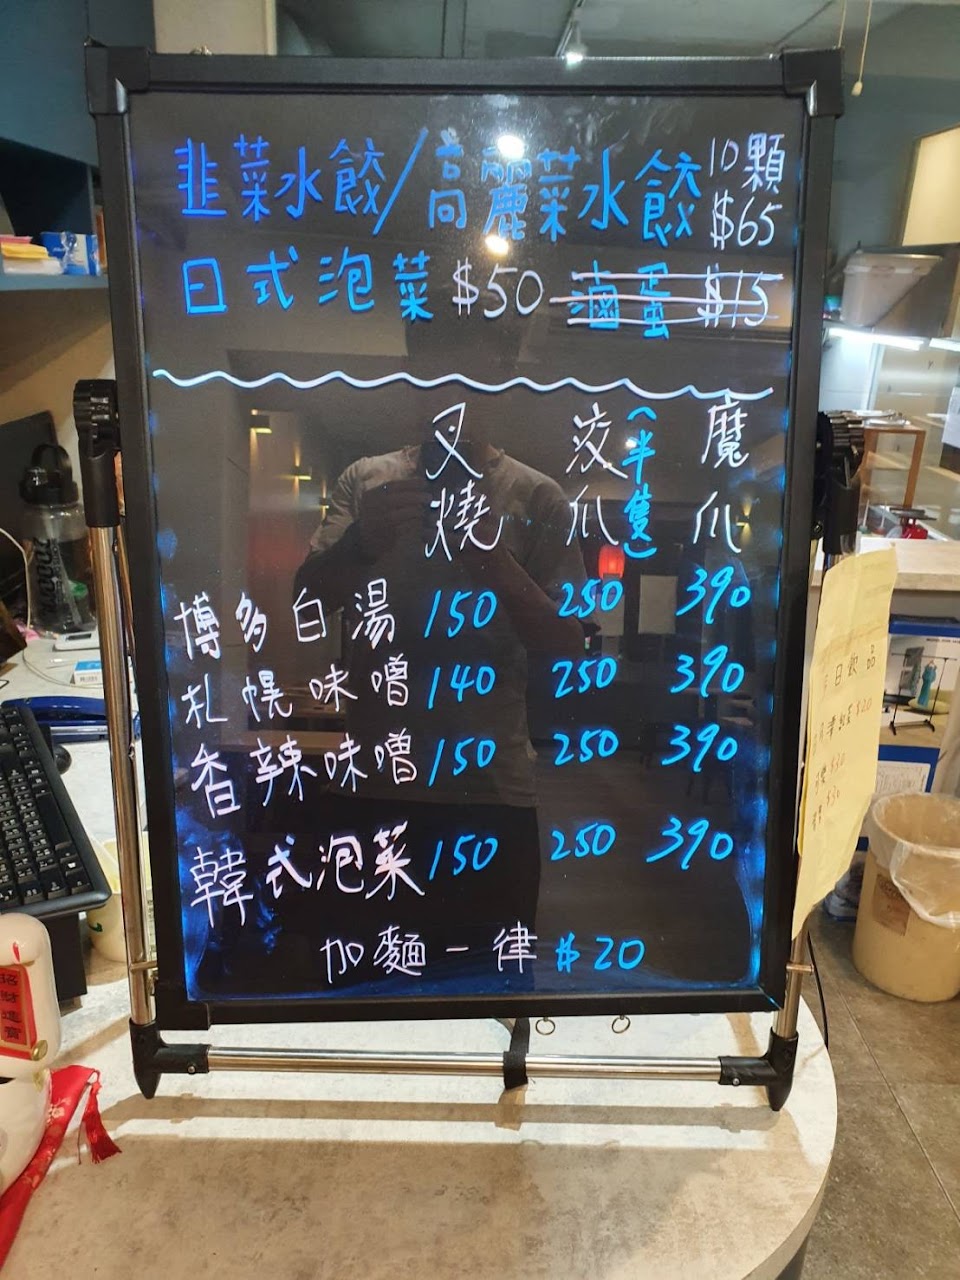 韭菜水餃/高麗菜水餃 10顆 $65
日式泡菜 $50 滷蛋 $15
叉燒 汶爪(半隻) 魔爪
博多白湯 150 250 390
札幌味噌 140 250 390
香辣味噌 150 250 390
韓式泡菜 150 250 390
加麵一律 $20
日飲品
$20
$30
$30
招財進寶